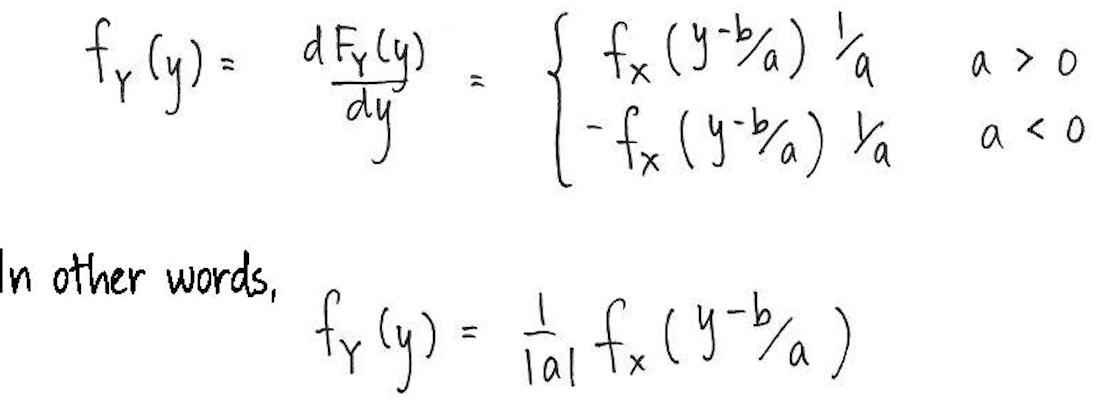 f_Y(y) = dF_Y(y)/dy = { f_X(y-b/a) 1/a a > 0
-f_X(y-b/a) 1/a a < 0
In other words,
f_Y(y) = 1/|a| f_X(y-b/a)